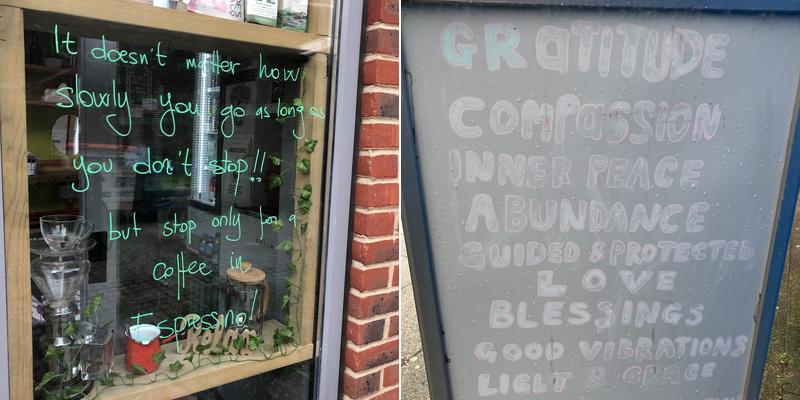 It doesn't matter how
slowly you go as long as
you don't stop!!
but stop only for a
coffee in
Espressino!
GRATITUDE
COMPASSION
INNER PEACE
ABUNDANCE
GUIDED & PROTECTED
LOVE
BLESSINGS
GOOD VIBRATIONS
LIGHT & GRACE